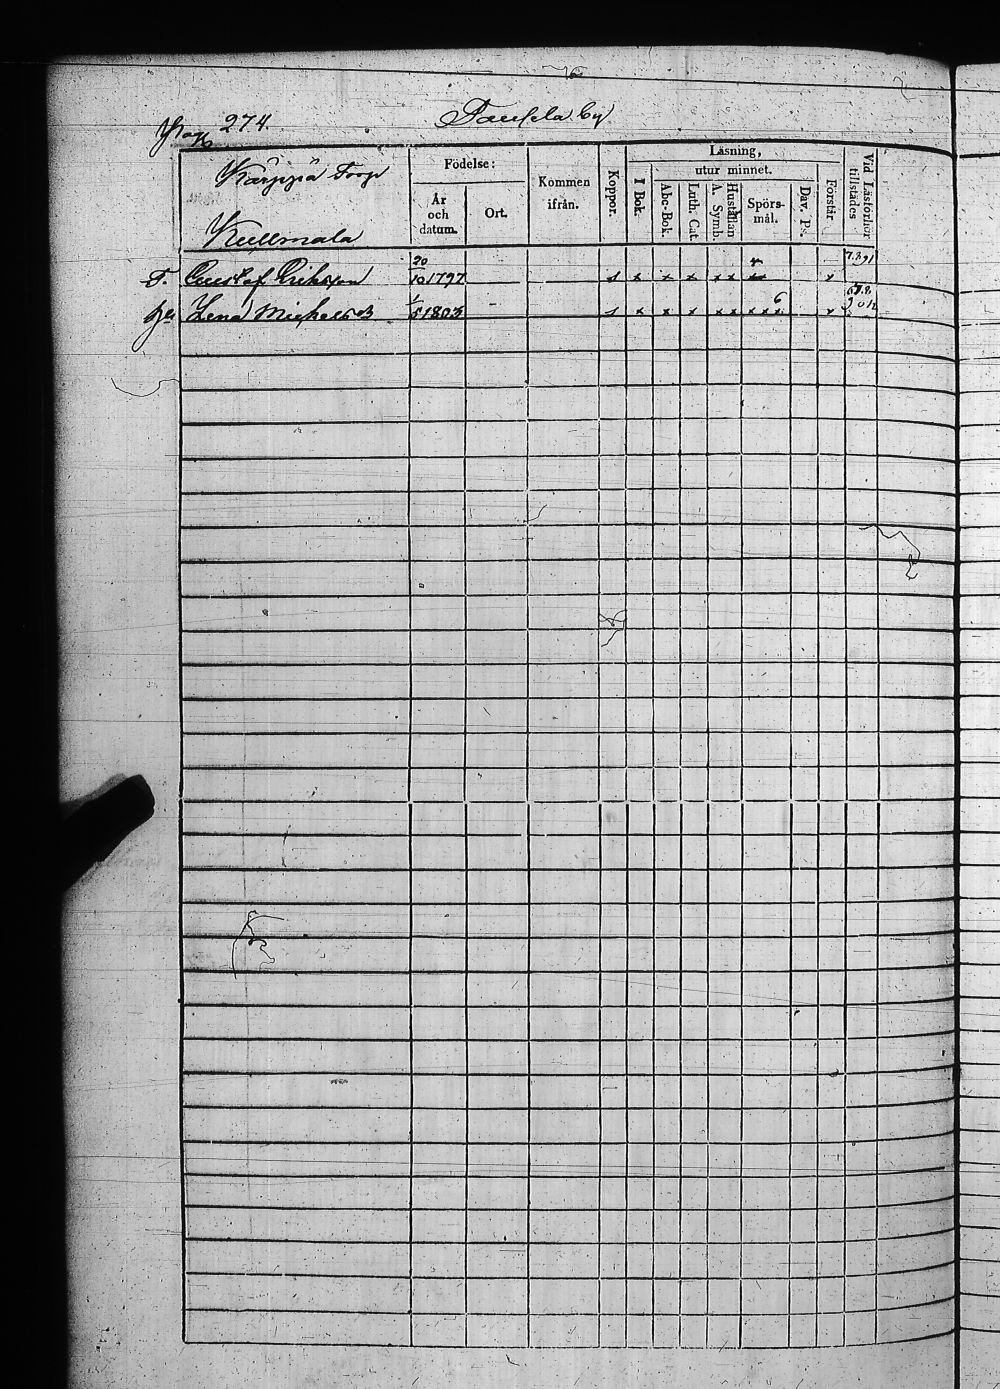 274.
by
Kärppä Torp
Kullmala
Födelse:
År
och
datum.
Ort.
Kommen
ifrån.
Koppor.
Läsning,
I Bok.
utur minnet.
Abc-Bok.
Luth. Cat.
Hustaflan
A. Symb.
Spörs-
mål.
Dav. Ps.
Förstår
Vid Läsförhör
tillstädes
T. Gustaf Eriksson 20/10 1797 x x x x x x
Hu Lena Michelsd 1/5 1803 x x x x x x x x x